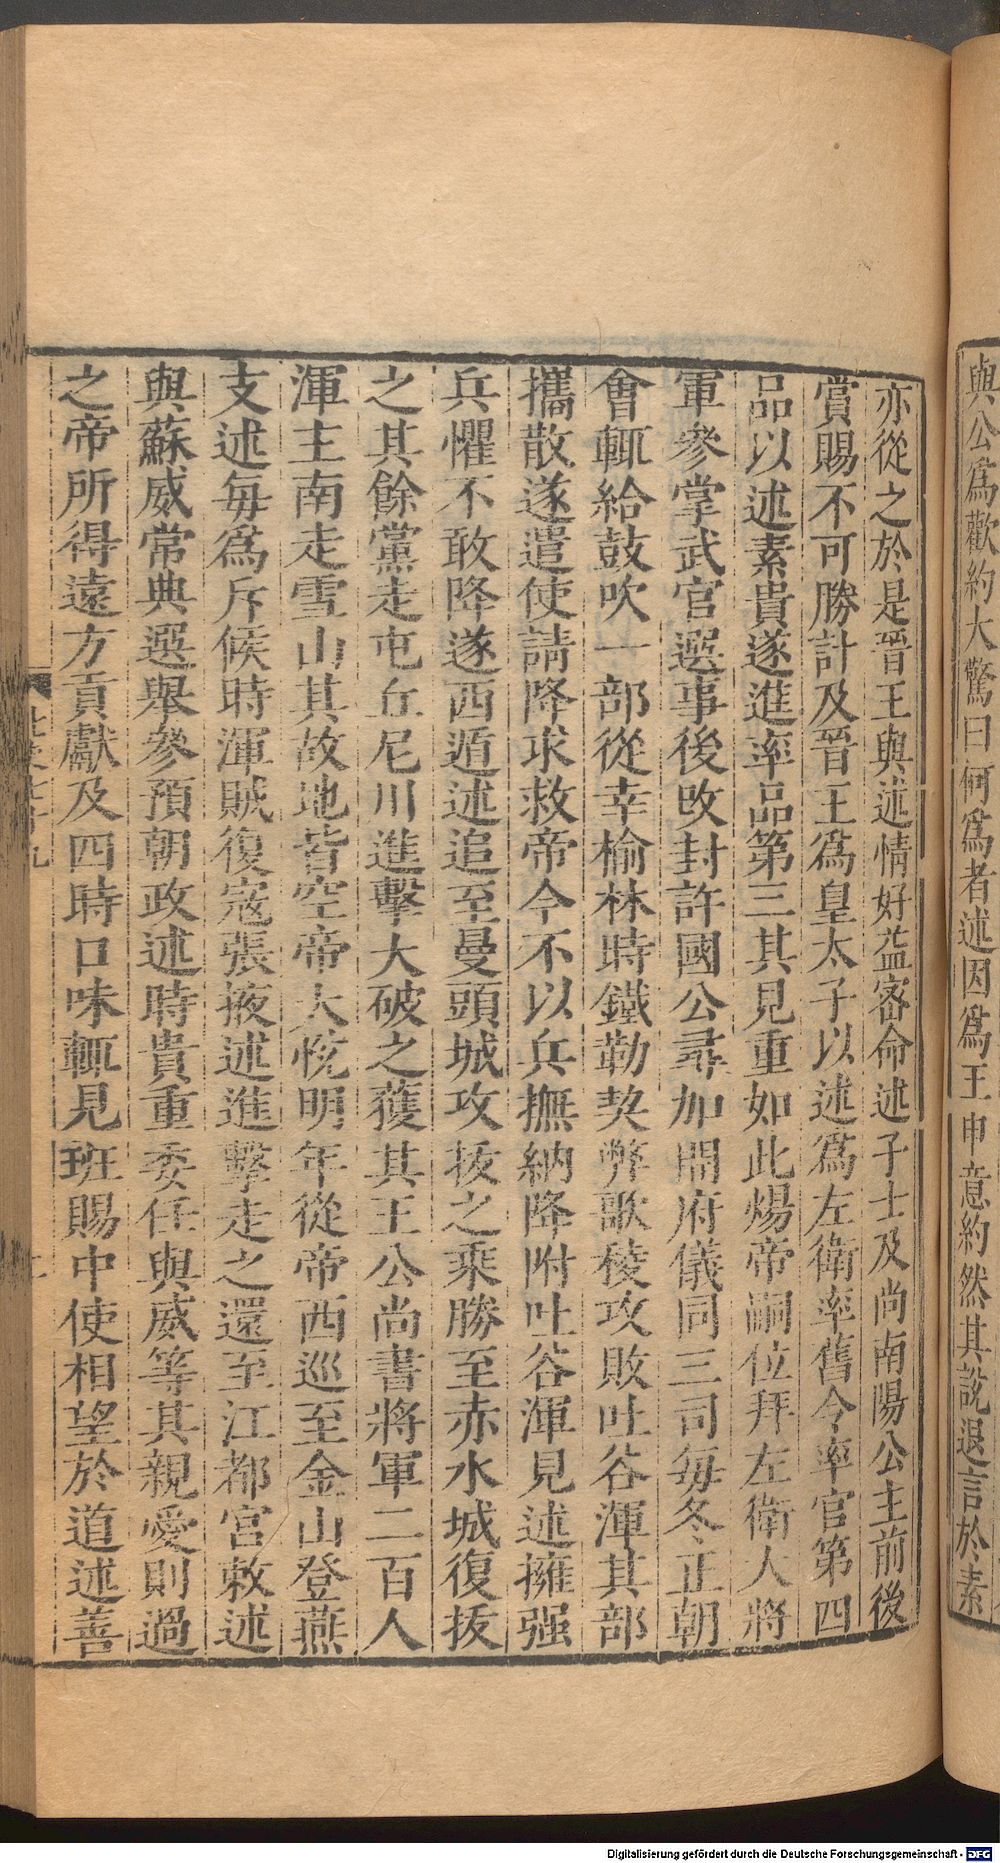 與公爲歡約大驚曰何爲者述因爲王申意約然其說退言於素
亦從之於是晉王與述情好益密命述子士及尚南陽公主前後
賞賜不可勝計及晉王爲皇太子以述爲左衛率舊令率官第四
品以述素貴遂進率品第三其見重如此煬帝嗣位拜左衛大將
軍參掌武官選事後改封許國公尋加開府儀同三司每冬正朝
會輒給鼓吹一部從幸榆林時鐵勒契弊歌稜攻敗吐谷渾其部
攜散遂遣使請降求救帝令不以兵撫納降附吐谷渾見述擁强
兵懼不敢降遂西遁述追至曼頭城攻拔之乘勝至赤水城復拔
之其餘黨走屯丘尼川進擊大破之獲其王公尚書將軍二百人
渾主南走雪山其故地皆空帝大悅明年從帝西巡至金山登燕
支述每爲斥候時渾賊復寇張掖述進擊走之還至江都宮敕述
與蘇威常典選舉參預朝政述時貴重委任與威等其親愛則過
之帝所得遠方貢獻及四時口味輒見班賜中使相望於道述善
Digitalisierung gefördert durch die Deutsche Forschungsgemeinschaft - DFG